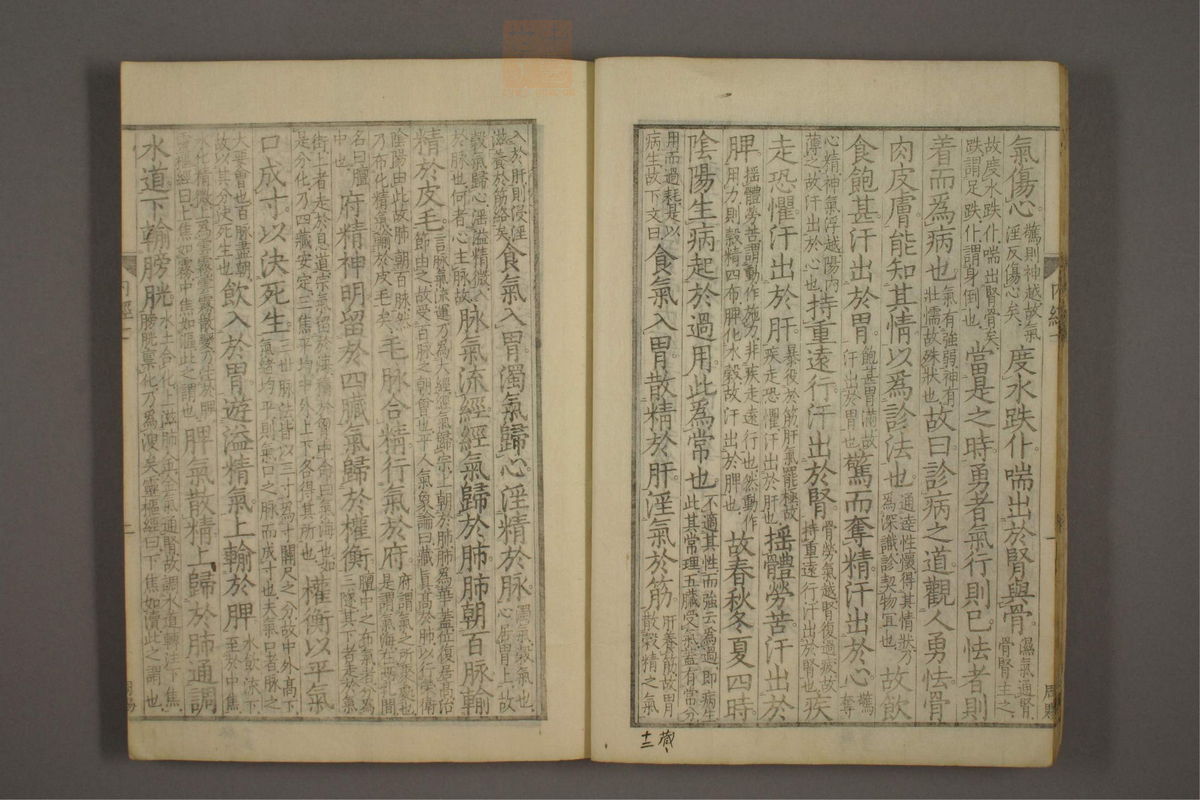 氣傷心驚則神越故氣淫反傷心矣度水跌仆喘出於腎與骨濕氣通腎骨腎主之
故度水跌仆喘出腎骨矣跌謂足跌仆謂身倒也當是之時勇者氣行則已怯者則
着而為病也氣有強弱神有壯懦故殊狀也故曰診病之道觀人勇怯骨
肉皮膚能知其情以為診法也通達性懷得其情狀乃為深識診契物宜也故飲
食飽甚汗出於胃飽甚胃滿故汗出於胃也驚而奪精汗出於心驚奪
心精神氣浮越陽內薄之故汗出於心也持重遠行汗出於腎骨勞氣越腎復過疲故持重遠行汗出於腎也疾
走恐懼汗出於肝暴役於筋肝氣罷極故疾走恐懼汗出於肝也搖體勞苦汗出於
脾搖體勞苦謂動作施力非疾走遠行也然動作用力則穀精四布脾化水穀故汗出於脾也故春秋冬夏四時
陰陽生病起於過用此為常也不適其性而強云為過即病生此其常理五藏受氣蓋有常分
用而過耗是以病生故下文曰食氣入胃散精於肝淫氣於筋肝養筋故胃散穀精之氣
入於肝則浸淫滋養於筋絡矣食氣入胃濁氣歸心淫精於脉濁氣穀氣也心居胃上故
穀氣歸心淫溢精微入於脉也何者心主脉故脉氣流經經氣歸於肺肺朝百脉輸
精於皮毛言脉氣流運乃為大經經氣歸宗上朝於肺肺為華蓋位復居高治節由之故受百脉之朝會也平人氣象論曰藏真高於肺以行榮衛
陰陽由此故肺朝百脉然乃布化精氣輸於皮毛矣毛脉合精行氣於府府謂氣之所聚處也是謂氣海在兩乳間
名曰膻中也府精神明留於四臟氣歸於權衡膻中之布氣者分為三隧其下者走於氣
街上者走於息道宗氣留於海積於胸中命曰氣海也如是分化乃四藏安定三焦平均中外上下各得其所也權衡以平氣
口成寸以決死生三世脉法皆以三寸為寸關尺之分故中外高下氣緒均平則氣口之脉而成寸也夫氣口者脉之
大要會也百脉盡朝故以其分決死生也飲入於胃遊溢精氣上輸於脾水飲流下至於中焦
水化精微上為雲霧雲霧散變乃注於脾靈樞經曰上焦如霧中焦如漚此之謂也脾氣散精上歸於肺通調
水道下輸膀胱水土合化上滋肺金金氣通腎故調水道轉注下焦膀胱稟化乃為溲矣靈樞經曰下焦如瀆此之謂也
內經
藏
十二